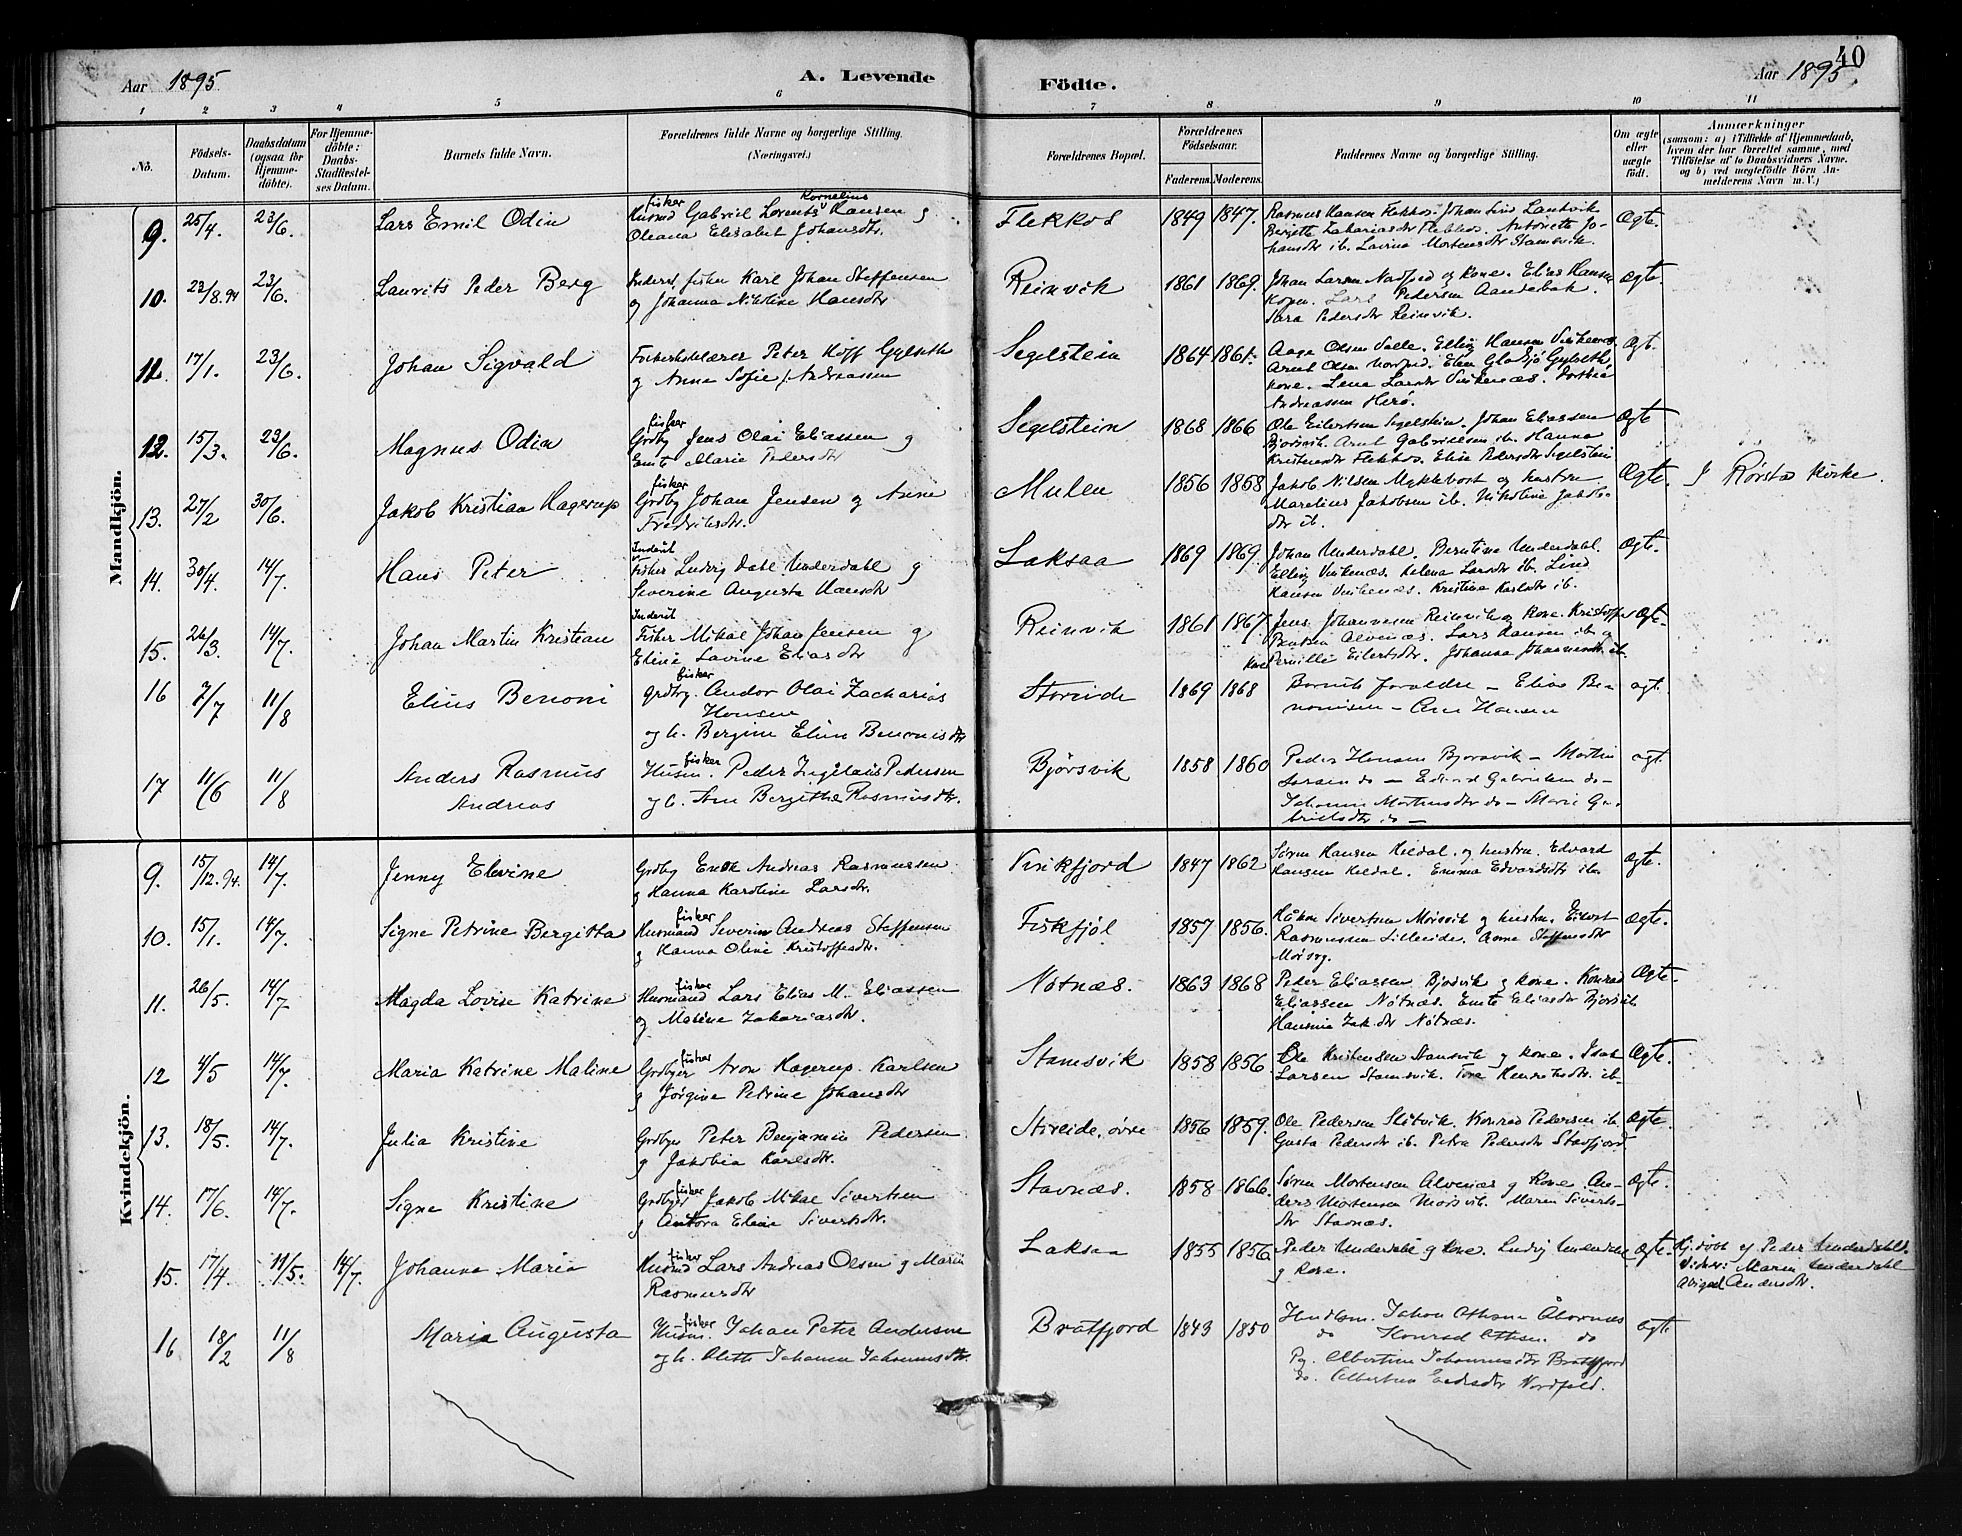 Aar 1895.
A. Levende
Födte.
Aar 1895.
40
1 2 3 4 5 6 7 8 9 10 11
No.
Födsels-Datum.
Daabsdatum (ogsaa for Hjemmedöbte).
For Hjemmedöbte: Daabs-Stadfæstelses Datum.
Barnets fulde Navn.
Forældrenes fulde Navne og borgerlige Stilling.
(Næringsvei.)
Forældrenes Bopæl.
Forældrenes Födselsaar.
Faderens. Moderens.
Faddernes Navne og borgerlige Stilling.
Om ægte eller uægte födt.
Anmærkninger
(saasom: a) i Tilfælde af Hjemmedaab, hvem der har forrettet samme, med Tilföielse af to Daabsvidners Navne. og b) ved uægtefödte Börn Anmelderens Navn m.V.)
Mandkjön.
9. 25/4. 23/6. Lars Emil Odin
fisker Kornelius
Husmd Gabriel Lorents Hansen g
Oleana Elisabet Johansdtr.
Flekkos 1849 1847.
Rasmus Hansen Flekkos. Johan Lind Lantvik
Bergette Zakariasdtr Flekkos. Antoniette Jo-
hansdtr ib. Lavina Mortensdtr Stamsvik.
Ægte.
10. 23/8.94 23/6. Laurits Peder Berg
Inderst, fisker Karl Johan Steffensen
og Johanna Nikoline Hansdtr
Reinvik 1861 1869.
Johan Larsen Nadfjed og Kone. Elias Hansen
Kopn. Lars Pedersen Aandebak.
Sara Pedersdtr Reinvik.
Ægte.
11. 17/1. 23/6. Johan Sigvald
Peter Hoff Gylseth
og Anne Sofie f. Andreassen
Segelstein 1864 1861.
Aage Olsen Valle. Elling Hansen Vinkenes.
Arnt Olsen Elen Gylseth
Kone. Lene Larsdtr Vinkenæs.
Andreassen Herø.
Ægt.
12. 15/3. 23/6. Magnus Odin
fisker
Grdbr Jens Olai Eliassen g
Emte Marie Pedersdtr
Segelstein 1868 1866
Ole Eilertsen Segelstein. Johan Eliassen
Bjørsvik. Arnt Gabrielsen ib. Hanna
Kristensdtr Flekkos. Elise Pedersdtr Segelstein
Ægte
13. 27/2 30/6. Jakob Kristian Hagerup
fisker
Grdbr Johan Jensen og Anne
Fredriksdtr.
Mulen 1856 1868
Jakob Nilsen Myklebost og hustru
Marelius Jakobsen ib. Nikoline Jakobs-
dtr ib.
Ægte. I Rørstad Kirke.
14. 30/4. 14/7. Hans Peter
Inderst
Fisker Ludvig Dahl Underdahl g
Severine Augusta Hansdtr
Laksaa 1869 1869.
Johan Underdahl. Berntine Underdahl.
Elling Vinkenæs. Helena Larsdtr ib. Lind
Hansen Vinkenæs. Kristine Karlsdtr ib.
Ægte.
15. 26/3. 14/7. Johan Martin Kristian
Inderst
Fisker Mikal Johan Jensen g
Eline Lavine Eliasdtr
Reinvik 1861 1867.
Jens Johannesen Reinvik og Kone. Kristoffer
Alvenæs. Lars Hansen ib g
Kone Pernille Eilertsdtr. Johanna Johannesdtr ib.
Ægte.
16 7/7 11/8 Elius Benoni
fisker
Grdbrg. Andor Olai Zacharias
Hansen
og h. Bergine Elen Benonisdtr
Storeide 1869 1868
Barnets foreldre – Elias Be-
nonisen – Ane Hansen
ægt.
17 11/6 11/8 Anders Rasmus
Andreas
fisker
Husm. Peder Pedersen
og h. Ane Bergitha Rasmusdtr.
Bjørsvik 1858 1860
Peder Hansen Bjørsvik – Martin
Larsen do – Edvard Gabrielsen do –
Johanna Mortensdtr do – Marie Ga-
brielsdtr do –
ægt
Kvindekjön.
9. 15/12.94. 14/7. Jenny Elevine
Grdbr Enok Andreas Rasmussen
g Hanna Karoline Larsdtr.
Vinkfjord 1847 1862
Søren Hansen Kildal. og hustru. Edvard
Hansen Kildal. Emma Edvardsdtr ib.
Ægte.
10. 15/1. 14/7. Signe Petrine Bergitta
fisker
Husmand Severin Andreas Steffensen
g Hanna Oline Kristoffersdtr.
Fiskfjøl 1857 1856.
Håkon Sivertsen Mørsvik g hustru. Eilert
Rasmussen Lilleeide. Anne Steffensdtr
Mørsvg.
Ægte.
11. 26/5. 14/7 Magda Lovise Katrine
fisker
Husmand Lars Elias M. Eliassen
og Maline Zakariasdtr.
Nøtnæs. 1863 1868
Peder Eliassen Bjørsvik g Kone. Konrad
Eliassen Nøtnæs. Emte Eliasdtr Bjørsvik
Hansine Zak.dtr Nøtnæs.
Ægte.
12 4/5 14/7. Maria Katrine Maline
fisker
Grdbrger Aron Hagerup Karlsen
g Jørgine Petrine Johansdtr
Stamsvik 1858 1856.
Ole Kristensen Stamsvik g Kone. Isak
Larsen Stamsvik. Tora Henriksdtr ib.
Ægte.
13. 18/5. 14/7. Julia Kristine
Grdbrger Peter Benjamin Pedersen
g Jakobia Karlsdtr.
Storeide, øvre 1856 1859.
Ole Pedersen Slotvik. Konrad Pedersen ib.
Gusta Pedersdtr ib. Petra Pedersdtr Stavfjord.
Ægte.
14. 17/6. 14/7. Signe Kristine
fisker
Grdbrger Jakob Mikal Sivertsen
g Antora Eline Sivertsdtr.
Stavnæs. 1858 1866.
Søren Mortensen Alvenæs g Kone. An-
ders Mortensen Mørsvik. Maren Siverts-
dtr Stavnæs.
Ægte.
15. 17/4. 19/5. 14/7. Johanna Maria
fisker
Husmd Lars Andreas Olsen g Maren
Rasmusdtr
Laksaa 1855 1856.
Peder Underdahl g Kone. Ludvig Underdahl
g Kone.
Ægte.
Hj.døbt af Peder Underdahl.
Vidner: Maren Underdahl
Abigael Andersdtr.
16 18/2 11/8 Maria Augusta
fisker
Husm. Johan Peter Andersen
og h. Oleth Johanna Johannesdtr.
Bratfjord 1843 1850
Johan Åkornæs
do Konrad Ottesen do
Pg. Albertine Johannesdtr Bratfjord
do. Albertine Nordfold.
ægte